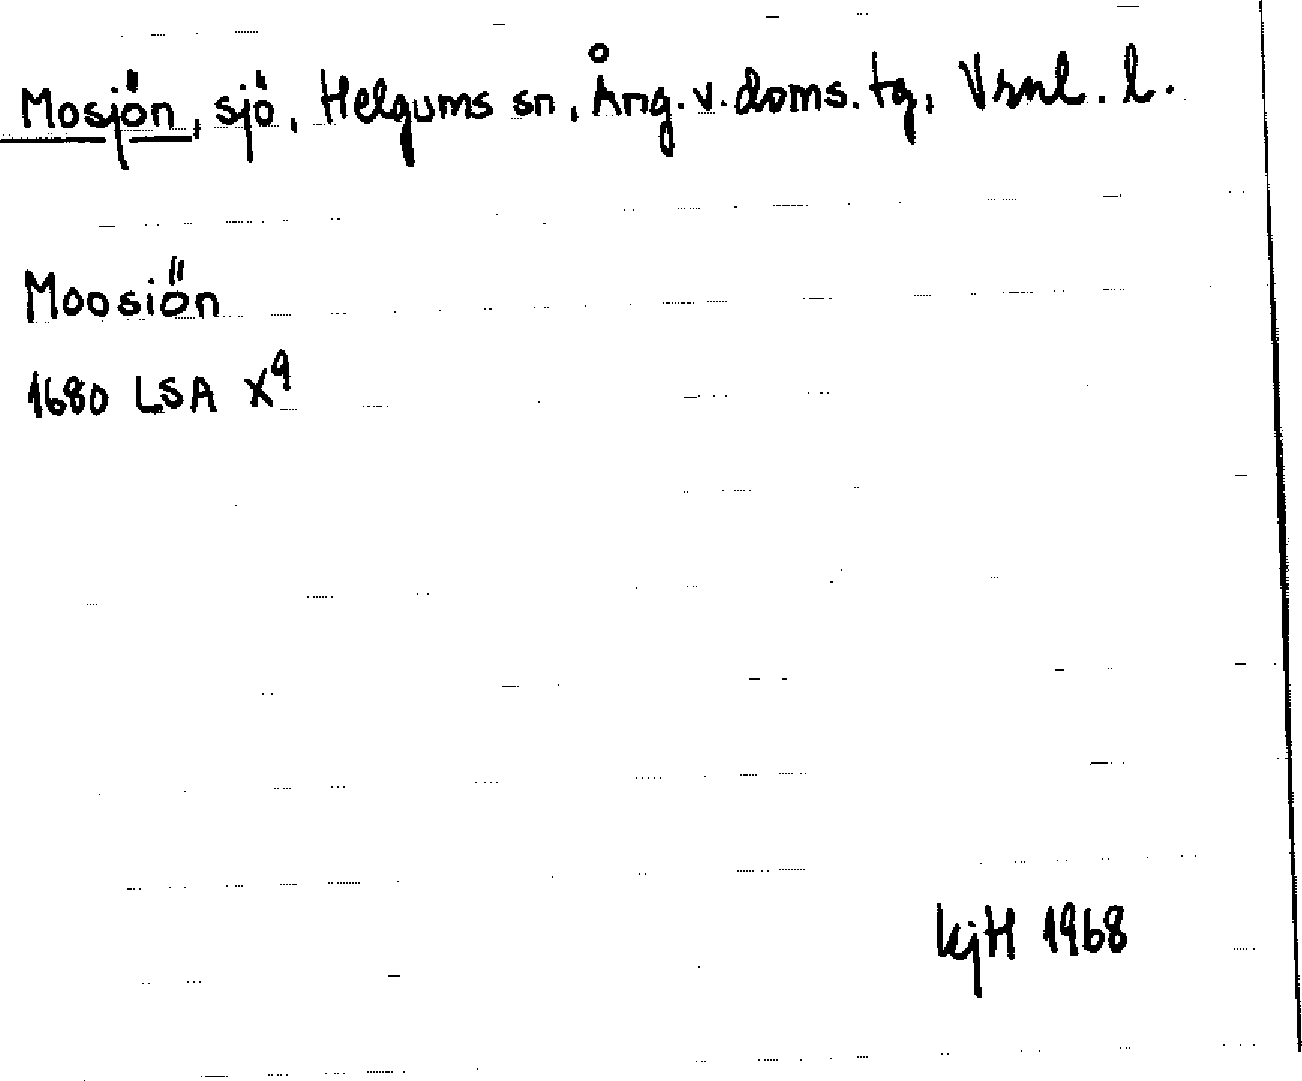 Mosjön, sjö, Helgums sn, Ång. v. doms. tg, Vrnl. l.
Moosiön
1680 LSA X9
kjH 1968